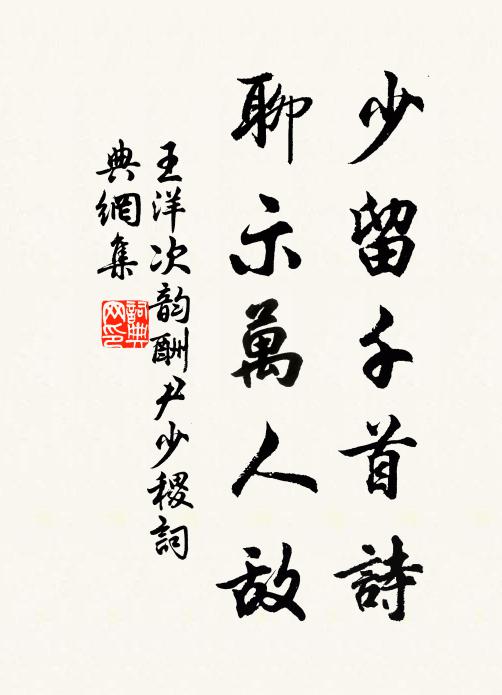 少留千首詩
聊示萬人敵
王洋次韵酬尹少稷詞
典網集
詞典
网印